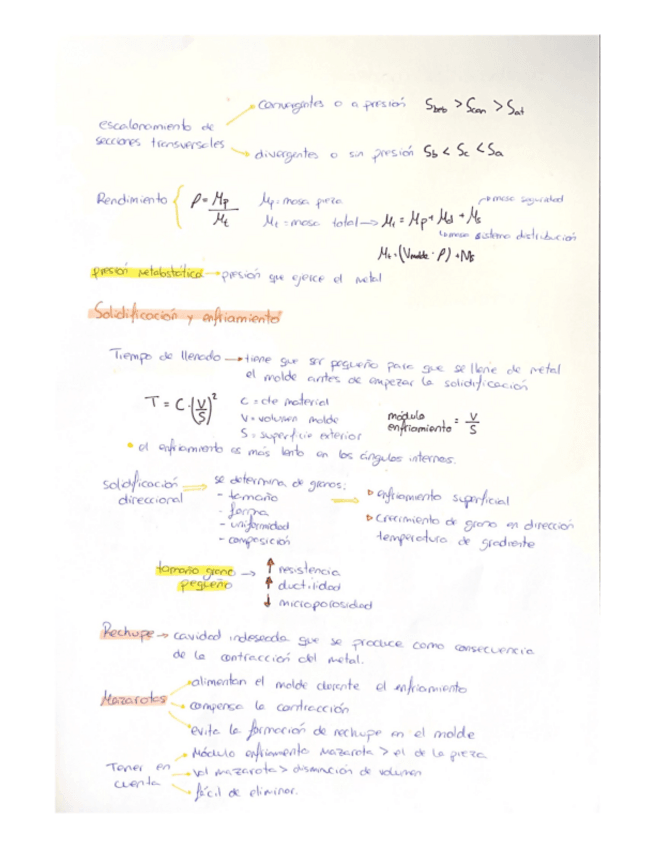 convergentes o a presión Sbeb > Scan > Sat
escalonamiento de
secciones transversales
divergentes o sin presión Sb < Sc < Sa
Rendimiento ρ = Mp/Mt Mp = masa pieza
masa seguridad
Mt = masa total → Mt = Mp + Md + Ms
masa sistema distribución
Mt = (Vmolde · ρ) + Ms
presión metalostática → presión que ejerce el metal
Solidificación y enfriamiento
Tiempo de llenado → tiene que ser pequeño para que se llene de metal
el molde antes de empezar la solidificación
T = C·(V/S)² C = cte material
V = volumen molde
S = superficie exterior
módulo enfriamiento = V/S
• el enfriamiento es más lento en los ángulos internos.
solidificación direccional ⇒ se determina de granos:
- tamaño
- forma
- uniformidad
- composición
⇒ ▷ enfriamiento superficial
▷ Crecimiento de grano en dirección
temperatura de gradiente
tamaño grano pequeño → ↑ resistencia
↑ ductilidad
↓ microporosidad
Rechupe → cavidad indeseada que se produce como consecuencia
de la contracción del metal.
alimentan el molde durante el enfriamiento
Mazarotas compensa la contracción
evita la formación de rechupe en el molde
Módulo enfriamiento Mazarota > el de la pieza
Tener en cuenta vol mazarota > disminución de volumen
fácil de eliminar.